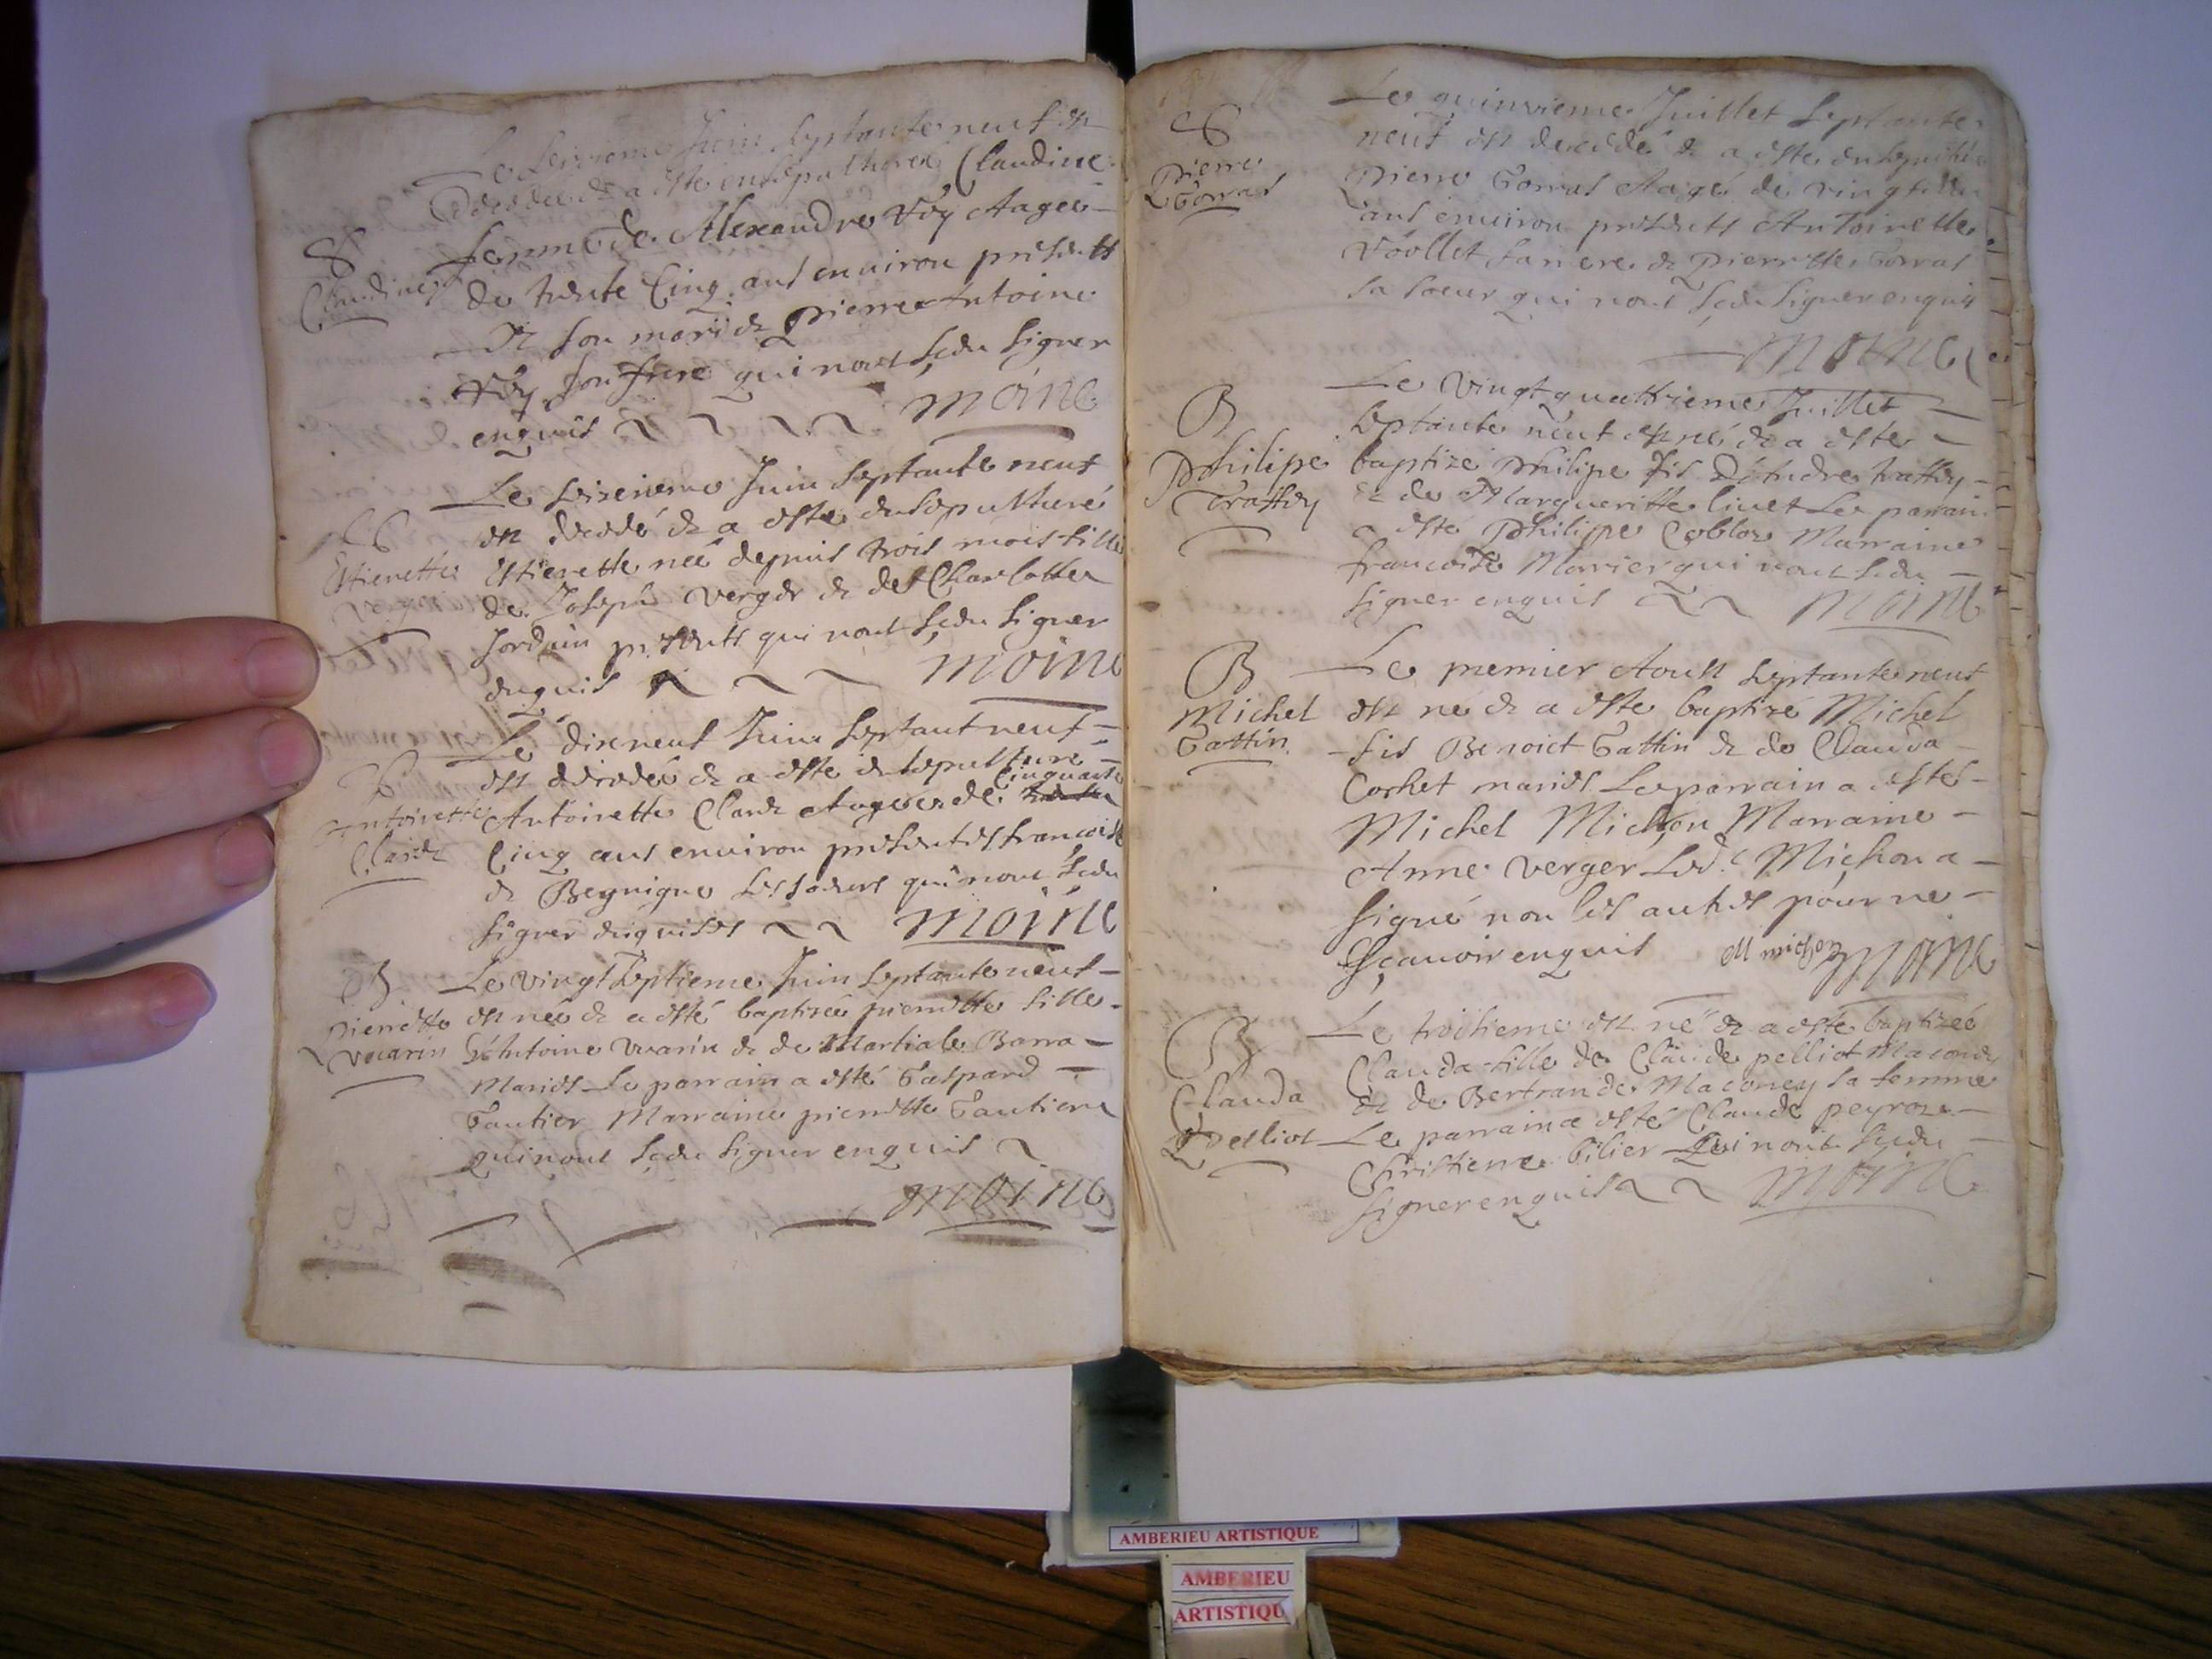 Le seizieme Juin septante neuf est
decedee & a este ensepulturee Claudine
femme de Alexandre Véy Aagee
S
Claudine
de trente Cinq ans environ presents
son mary & pierre Antoine
Véy son frere qui nont sçeu signer
enquis moine
Le seizieme Juin septante neuf
est decedé & a este ensepulturé
S
Estienette
Verger
Estienette neé depuis trois mois fille
de Joseph Verger & de Charlotte
Jordain presents qui nont sçeu signer
enquis moine
Le dixneuf Juin septant neuf
est decedée & a este ensepulturee
S
Antoinette
Clande
Antoinette Clande Aagee de Cinquante
Cinq ans environ presentes francoise
& Beynigne ses soeurs qui nont sçeu
signer enquises moine
B
pierrette
vuarin
Le vingt septieme Juin septante neuf
est neé & a esté baptiseé pierrette fille
d'Antoine vuarin & de Martiale Barra
mariés Le parrain a esté Gaspard
Gautier Marraine pierrette Gautiere
qui nont sçeu signer enquis
moine
Le quinzieme Juillet septante
neuf est decedé & a este ensepulturé
S
pierre
Gorras
pierre Gorras Aagé de vingt
ans environ presents Antoinette
Véollet sa mere & pierrette Gorras
sa soeur qui nont sçeu signer enquis
moine
Le vingt quattrieme Juillet
B
Philipe
Traffey
septante neuf est né & a este
baptizé philipe fis d'Andre traffey
& de Margueritte livet Le parrain
a esté philippe Coblos Marraine
francoise Marrier qui nont sçeu
signer enquis moine
B
Michel
Gattin
Le premier Aoust septante neuf
est né & a este baptizé Michel
fis Benoict Gattin & de Clauda
Cochet mariés Le parrain a esté
Michel Michon Marraine
Anne verger Led.t Michon a
signé non les autres pour ne
sçauoir enquis M michon moine
B
Clauda
Pelliot
Le troisieme est né & a este baptizeé
Clauda fille de Claude pelliot Maconez
& de Bertrande Maconey sa femme
Le parrain a esté Claude peyroz
Christiene Gilier Qui nont sçeu
signer enquis moine
AMBERIEU ARTISTIQUE
AMBERIEU
ARTISTIQU